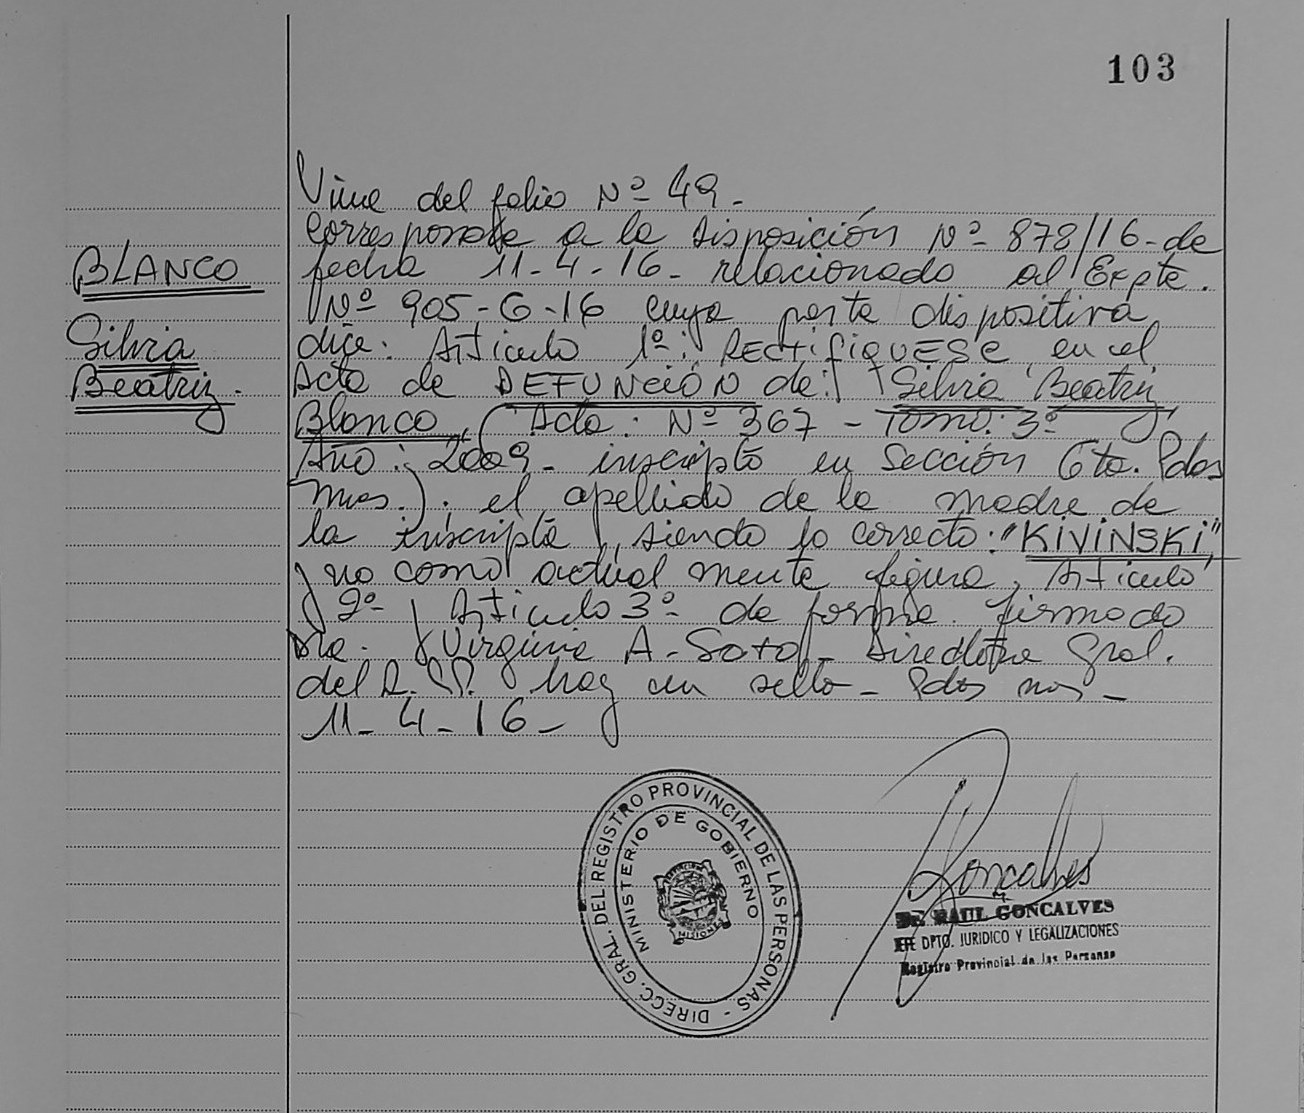 103
Viene del folio Nº 49.-
Corresponde a la Disposición Nº 878/16-de
BLANCO
fecha 11-4-16- relacionado al Expte.
Nº 905-G-16 cuya parte dispositiva
Silvia
dice: Artículo 1º: RECTIFIQUESE en el
Beatriz.
Acta de DEFUNCIÓN de: Silvia Beatriz
Blanco, (Acta: Nº 367 - Tomo: 3º
Año: 2009- inscripta en Sección 6ta. Pdas
Mnes.). el apellido de la madre de
la inscripta, siendo lo correcto: "KIVINSKI",
y no como actualmente figura, Artículo
2º- y Artículo 3º- de forma. firmado
Dra. Virginia A. Soto - Directora Gral.
del R.P.P. hay un sello - Pdas mnes -
11-4-16-
DIRECC. GRAL. DEL REGISTRO PROVINCIAL DE LAS PERSONAS -
MINISTERIO DE GOBIERNO
MISIONES
Goncalves
DR. RAUL GONCALVES
JEFE DPTO. JURIDICO Y LEGALIZACIONES
Registro Provincial de las Personas